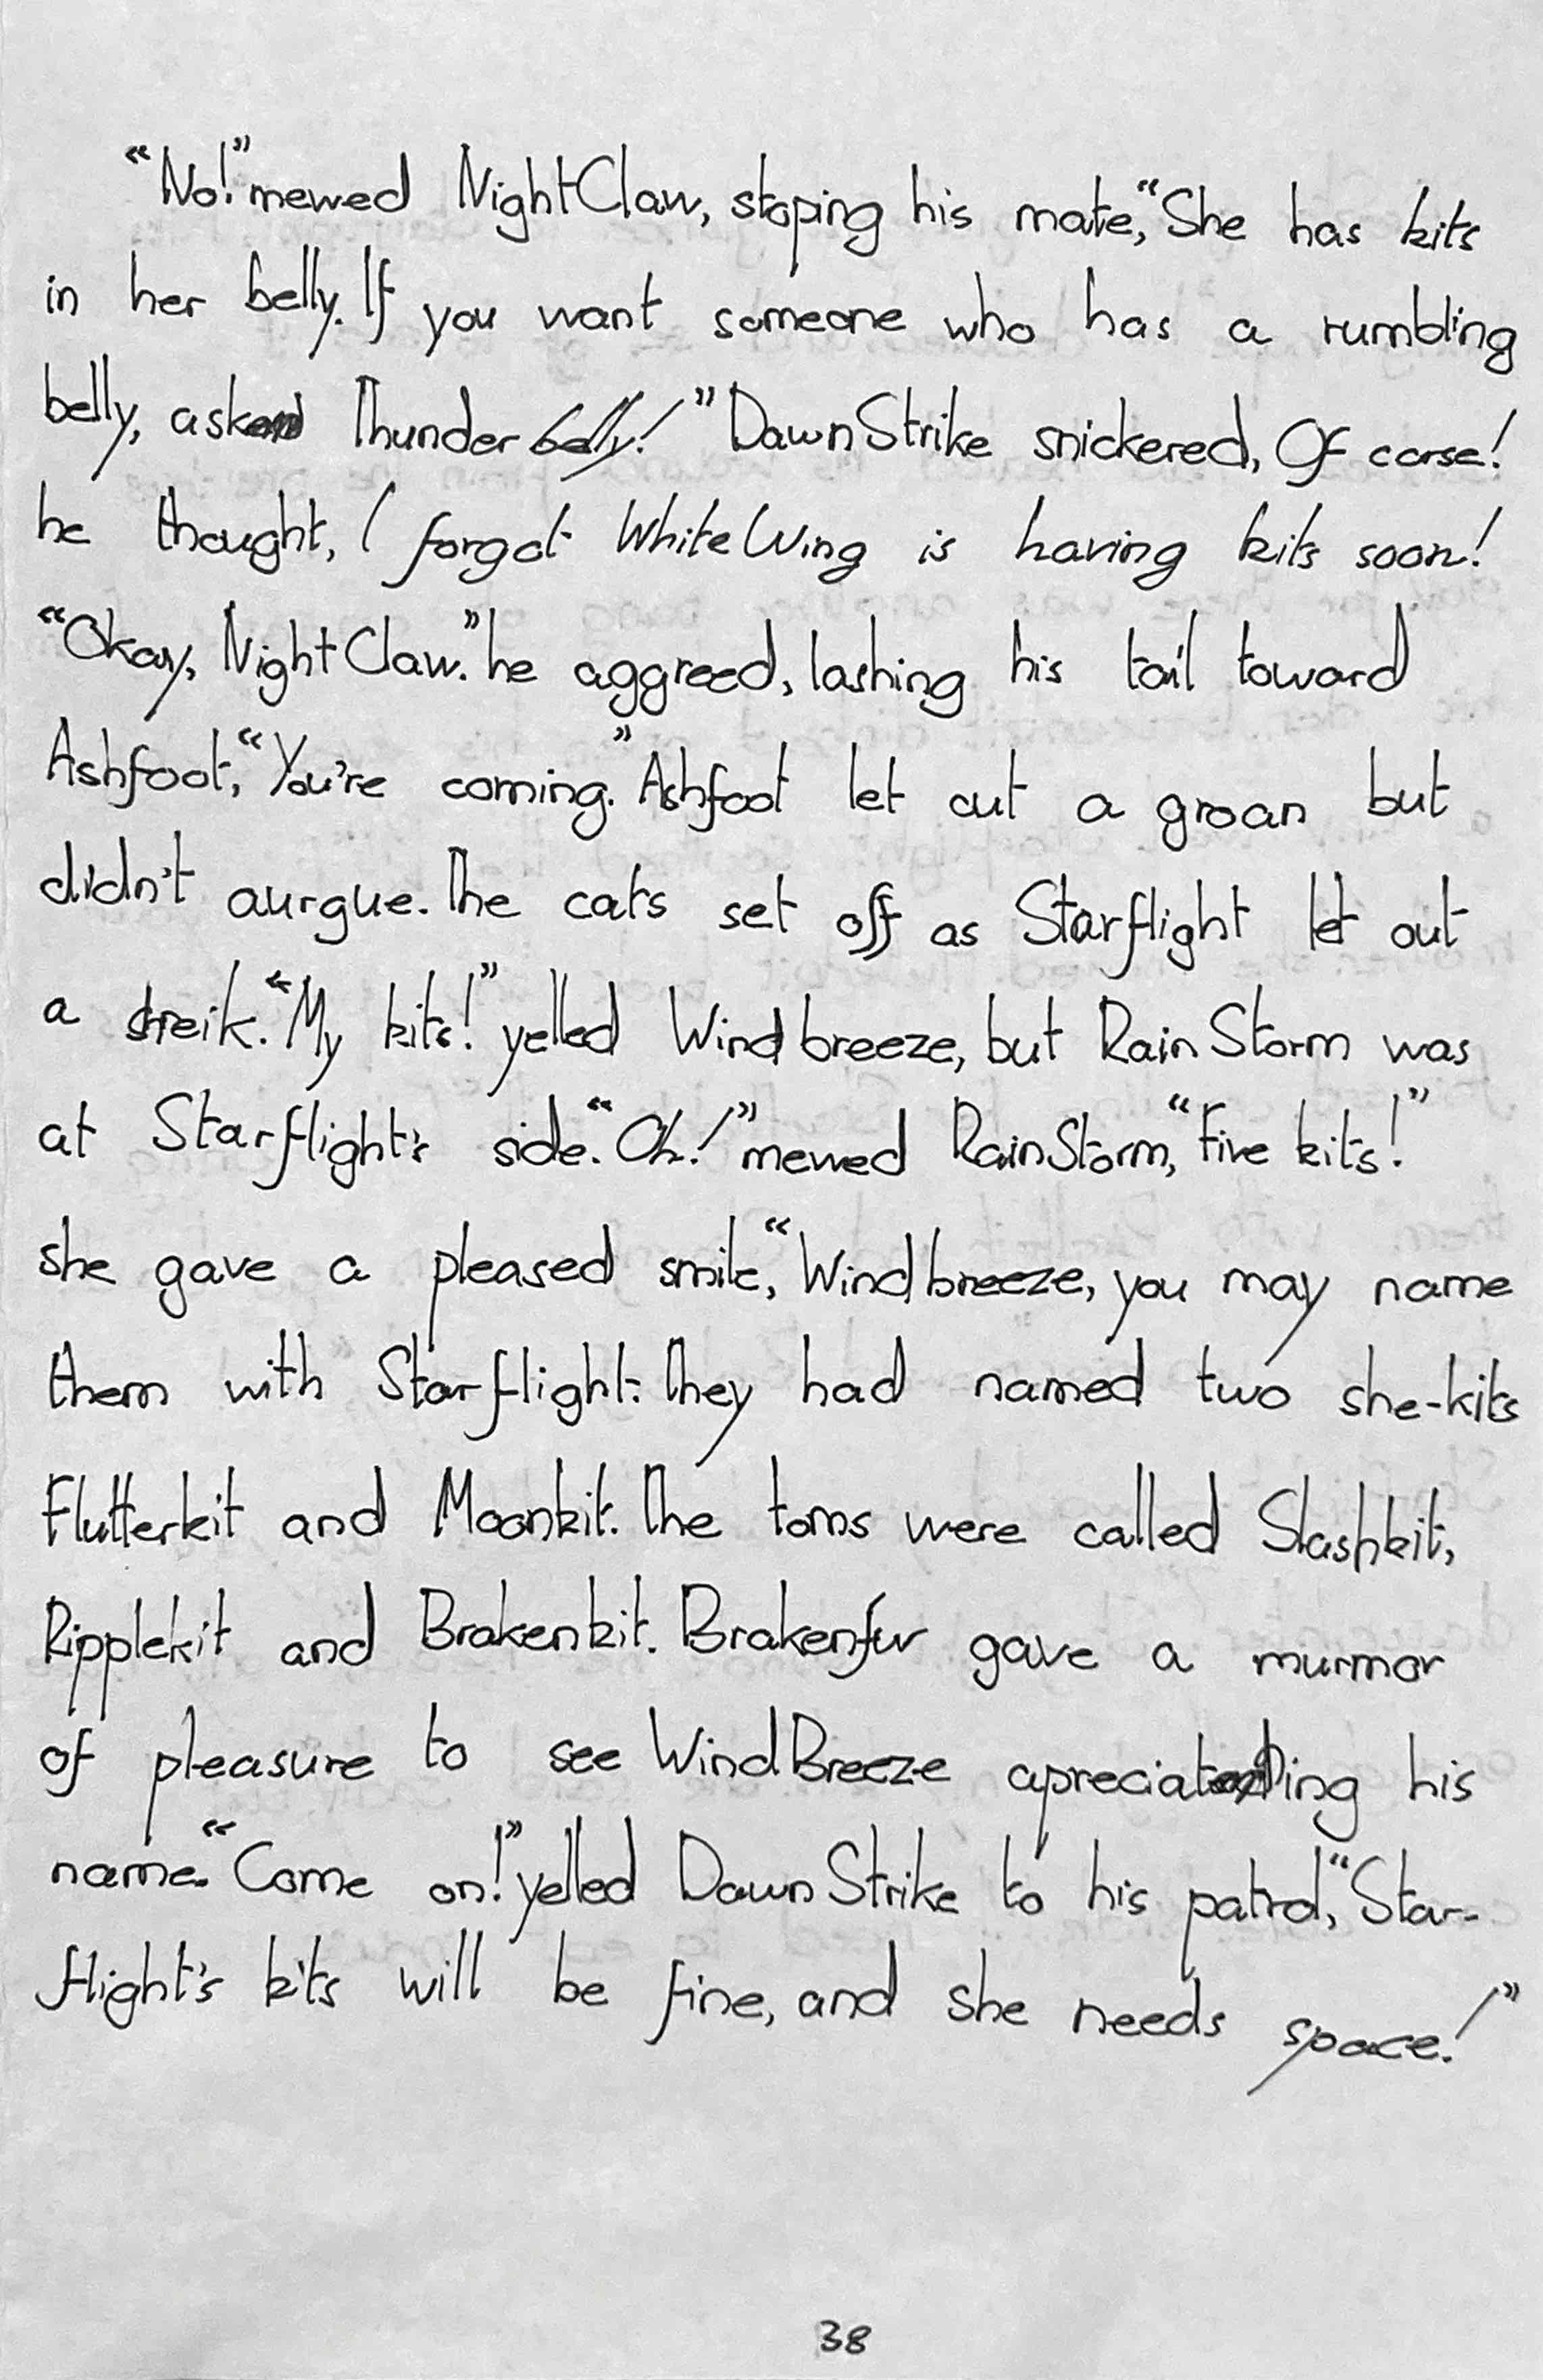 “No!” mewed NightClaw, stoping his mate, “She has kits
in her belly. If you want someone who has a rumbling
belly, ask Thunderbelly!” DawnStrike snickered, Of corse!
he thought, I forgot WhiteWing is having kits soon!
“Okay, NightClaw.” he aggreed, lashing his tail toward
Ashfoot, “You're coming.” Ashfoot let out a groan but
didn't aurgue. The cats set off as Starflight let out
a shreik. “My kits!” yelled Windbreeze, but RainStorm was
at Starflight's side. “Oh!” mewed RainStorm, “Five kits!”
she gave a pleased smile, “Windbreeze, you may name
them with Starflight. They had named two she-kits
Flutterkit and Moonkit. The toms were called Slashkit,
Ripplekit and Brakenkit. Brakenfur gave a murmor
of pleasure to see WindBreeze apreciating his
name. “Come on!” yelled DawnStrike to his patrol, “Star-
flight's kits will be fine, and she needs space!”
38